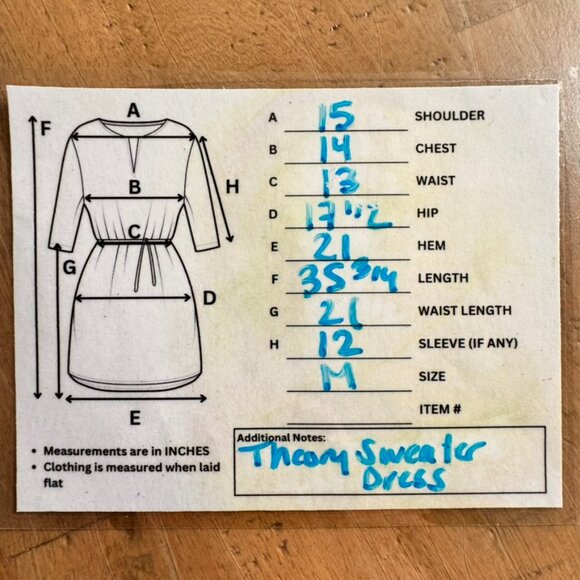 A
F
B
H
C
G
D
E
A 15 SHOULDER
B 14 CHEST
C 13 WAIST
D 17 1/2 HIP
E 21 HEM
F 35 3/4 LENGTH
G 21 WAIST LENGTH
H 12 SLEEVE (IF ANY)
M SIZE
ITEM #
• Measurements are in INCHES
• Clothing is measured when laid
flat
Additional Notes:
Theory Sweater
Dress